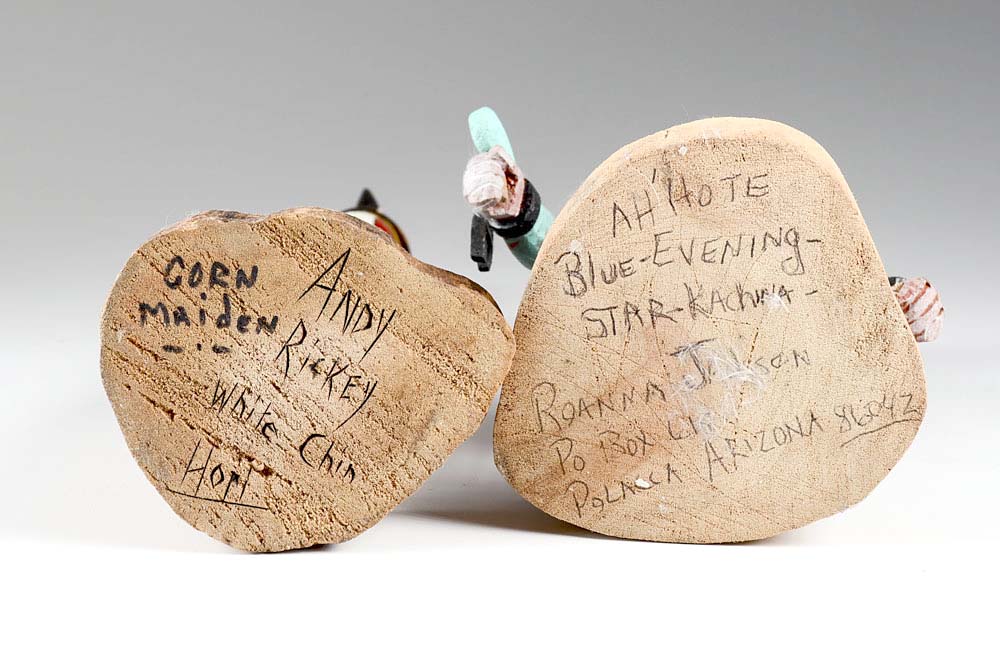 CORN
Maiden
ANDY
RICKEY
White-Chin
HOPI
AH'HOTE
BLUE-EVENING-
STAR-KACHINA-
ROANNA
PO BOX
POLACCA ARIZONA 86042